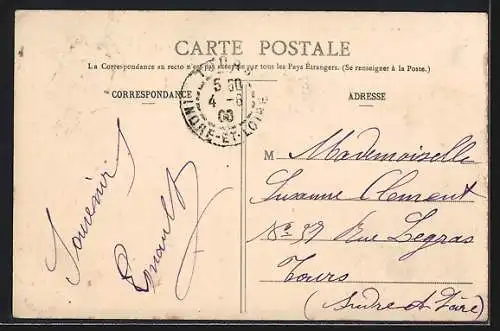 CARTE POSTALE
La Correspondance au recto n'est pas acceptée par tous les Pays Étrangers. (Se renseigner à la Poste.)
CORRESPONDANCE
ADRESSE
TOURS
5 50
4 - 6
INDRE-ET-LOIRE
Souvenir
M Mademoiselle
Susanne Clement
No 39 Rue Legras
Tours
(Indre et Loire)